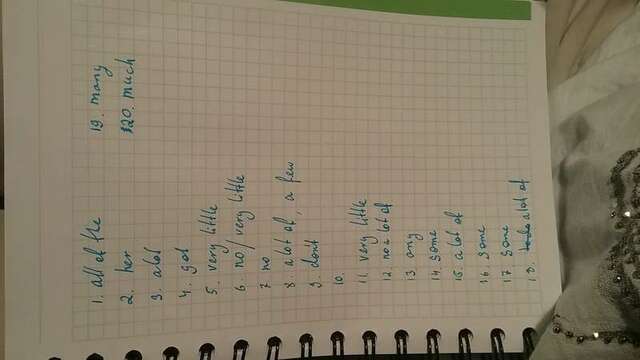 1. all of the
2. her
3. alot
4. got
5. very little
6. no/very little
7 no
8 a lot of, a few
9. dont
10.
11. very little
12. no a lot of
13 any
14. some
15. a lot of
16 some
17 some
18. alot of
19. many
20. much